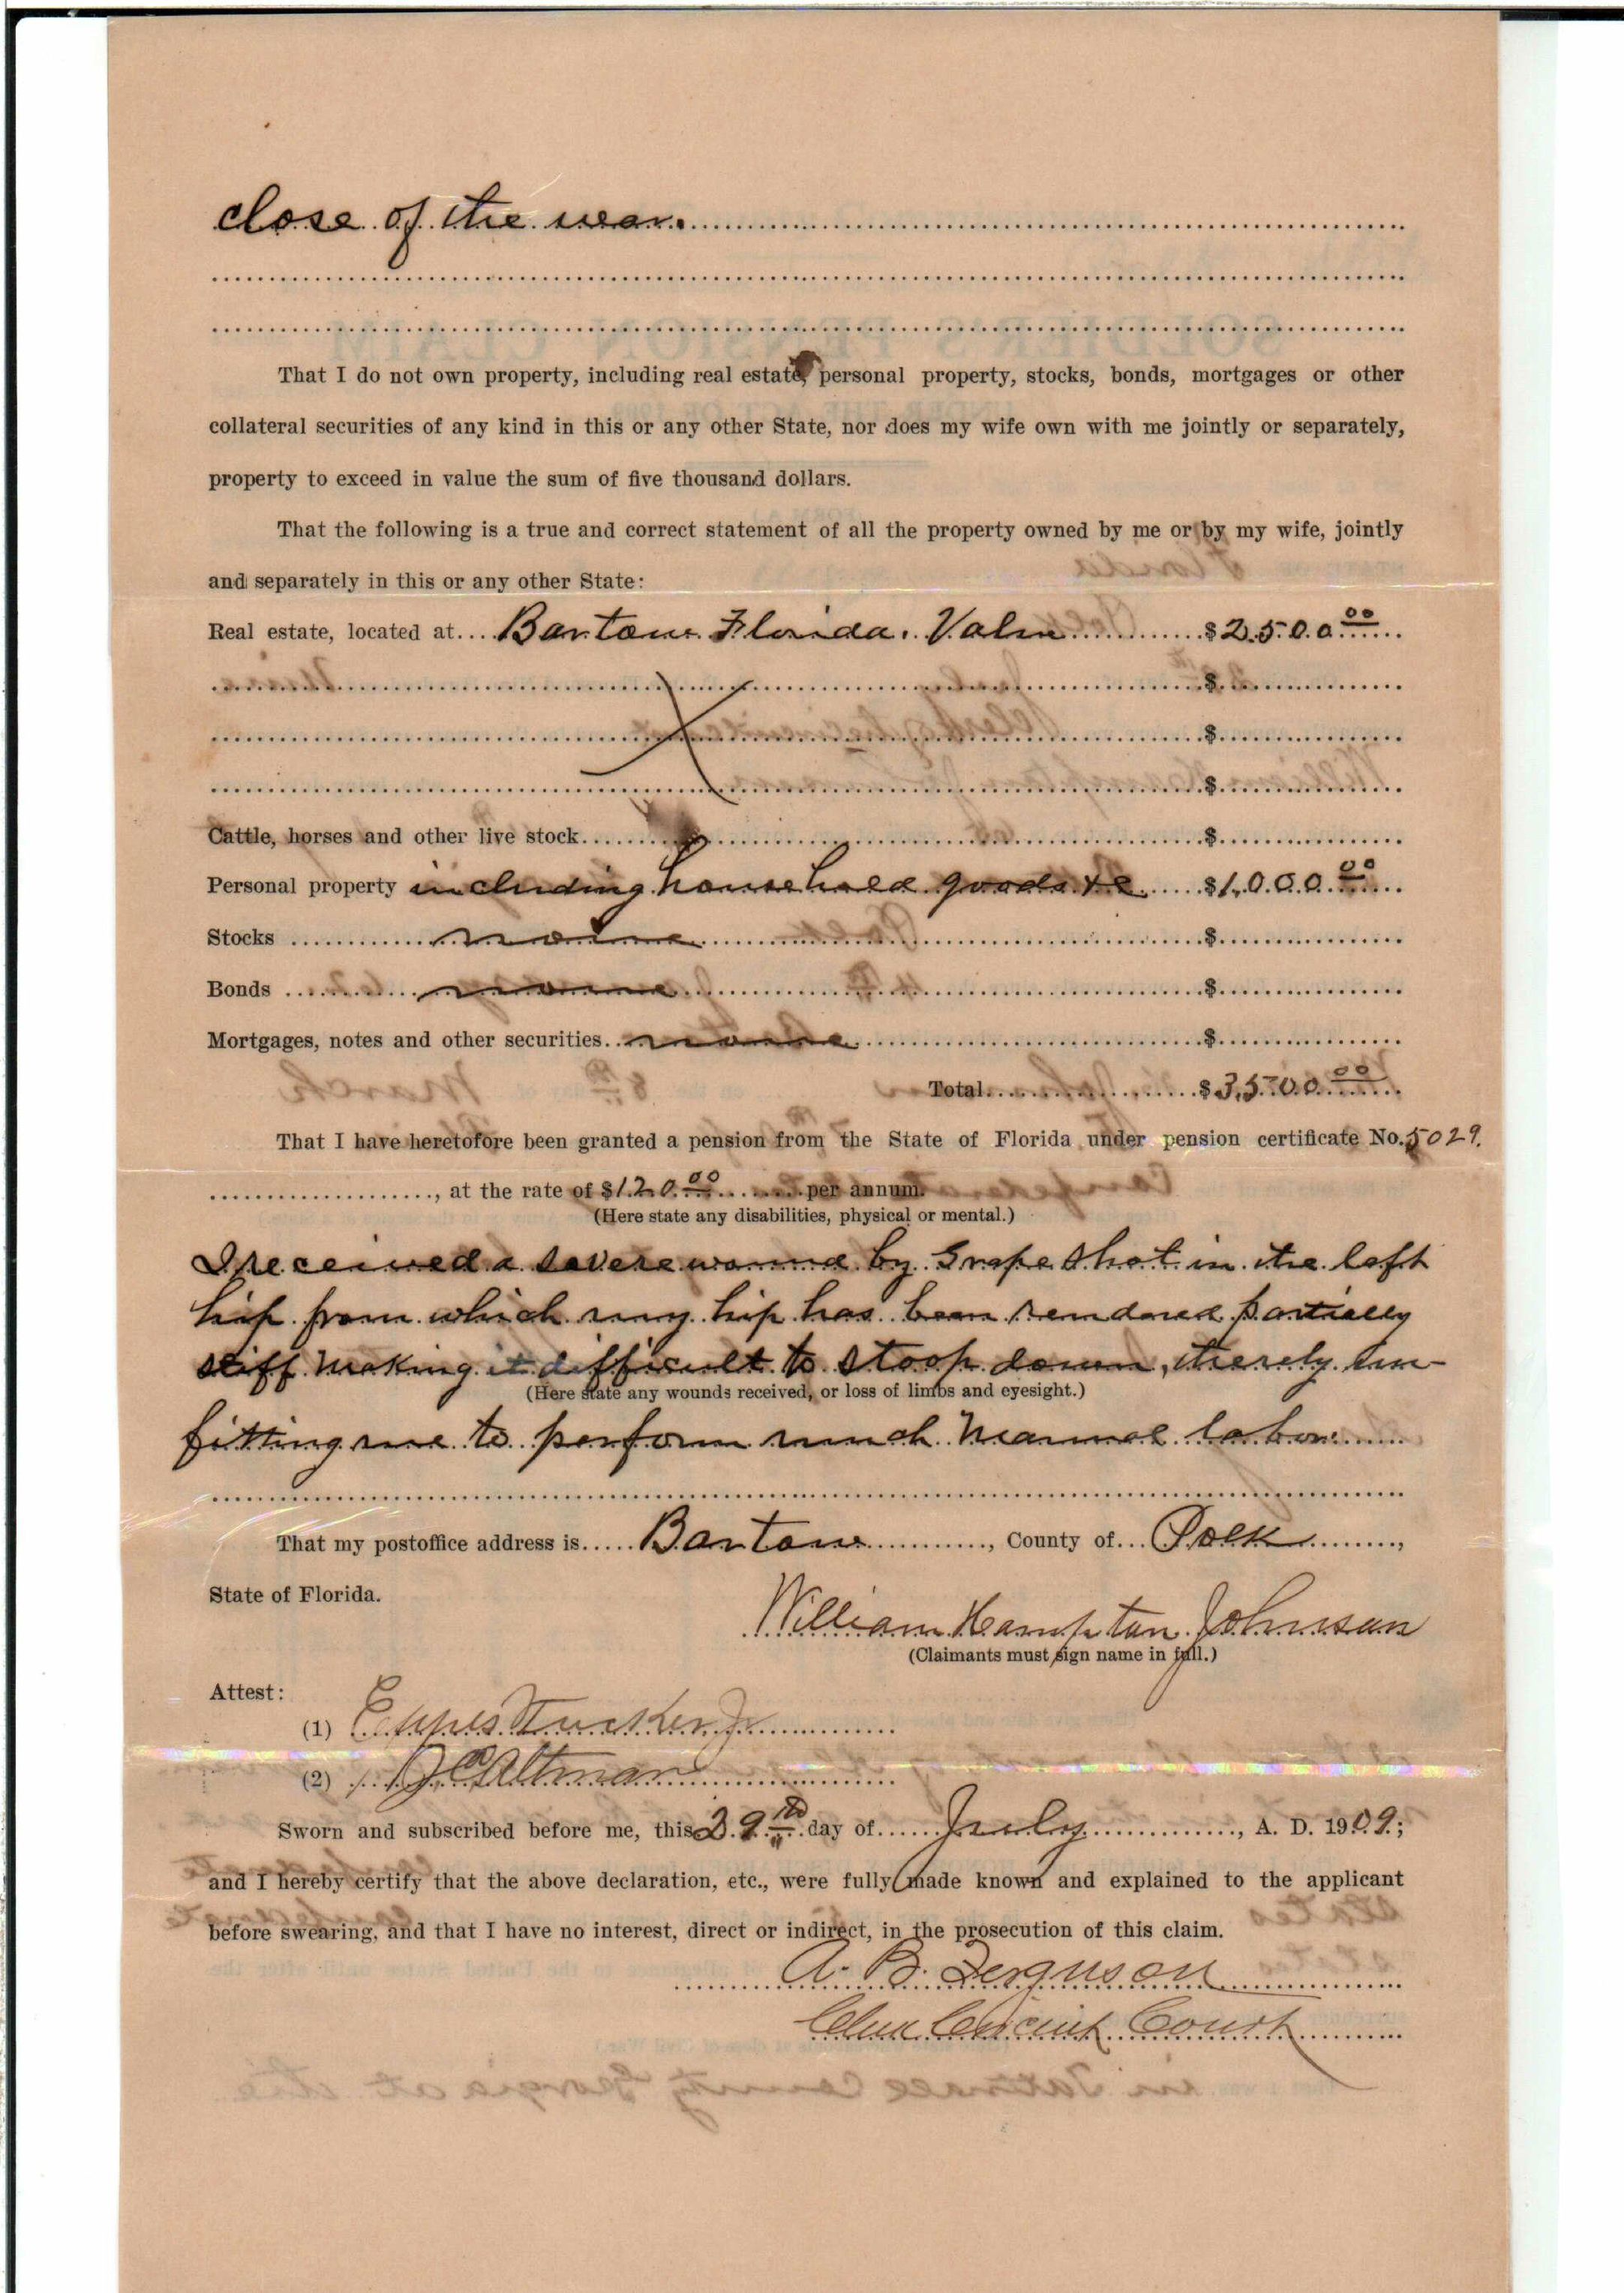 close of the war.
That I do not own property, including real estate, personal property, stocks, bonds, mortgages or other
collateral securities of any kind in this or any other State, nor does my wife own with me jointly or separately,
property to exceed in value the sum of five thousand dollars.
That the following is a true and correct statement of all the property owned by me or by my wife, jointly
and separately in this or any other State:
Real estate, located at Bartow Florida. Value $2500.00
$
$
$
Cattle, horses and other live stock $
Personal property including household goods &c $1,000.00
Stocks none $
Bonds none $
Mortgages, notes and other securities none $
Total $3,500.00
That I have heretofore been granted a pension from the State of Florida under pension certificate No. 5029.
, at the rate of $120.00 per annum.
(Here state any disabilities, physical or mental.)
I received a severe wound by Grape Shot in the left
hip from which my hip has been rendered partially
stiff making it difficult to stoop down, therely un-
(Here state any wounds received, or loss of limbs and eyesight.)
fitting me to perform much Manual labor.
That my postoffice address is Bartow, County of Polk,
State of Florida.
William Hampton Johnson
(Claimants must sign name in full.)
Attest:
(1) Eppes Tucker Jr
(2) Altman
Sworn and subscribed before me, this 29th day of July, A. D. 1909;
and I hereby certify that the above declaration, etc., were fully made known and explained to the applicant
before swearing, and that I have no interest, direct or indirect, in the prosecution of this claim.
A. B. Ferguson
Clerk Circuit Court